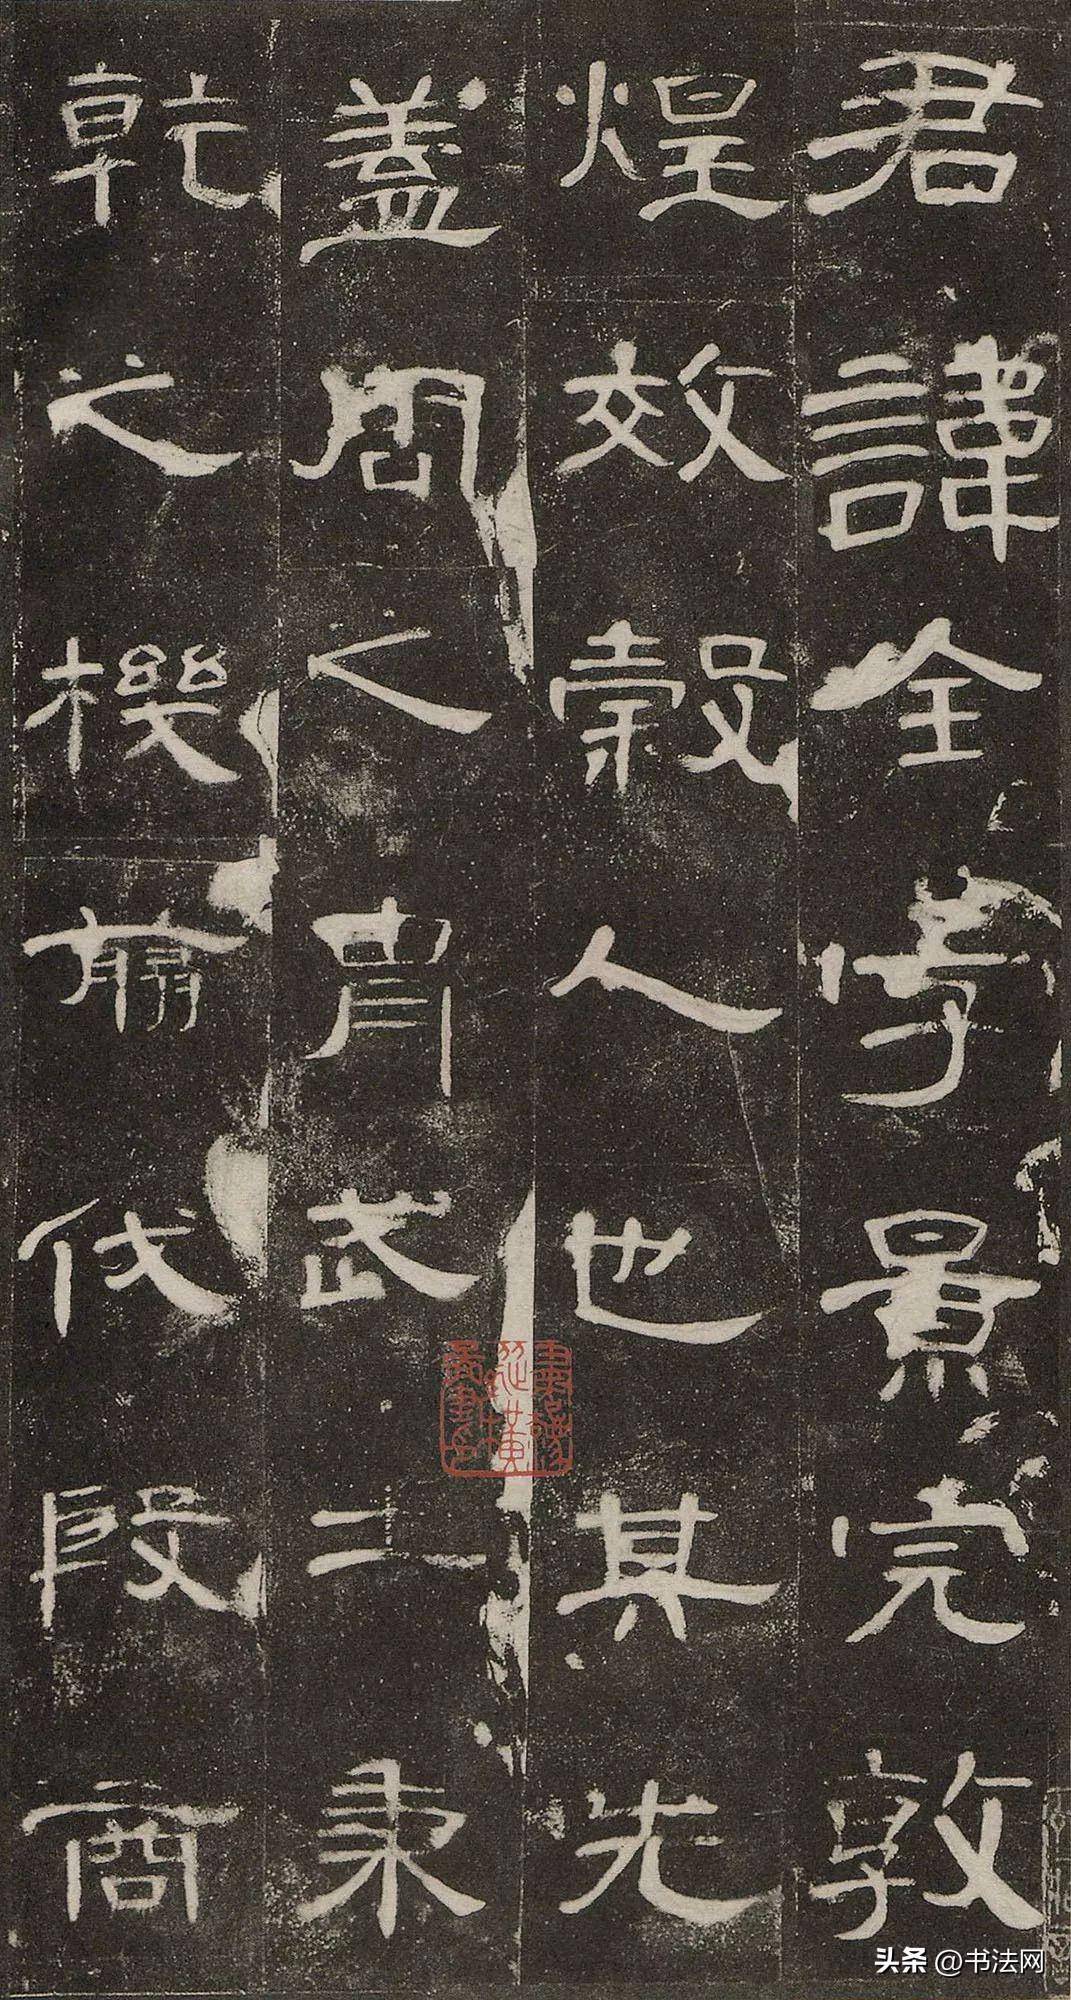 君諱全字景完敦
煌效穀人也其先
蓋周之胄武王秉
乾之機翦伐殷商
头条 @书法网